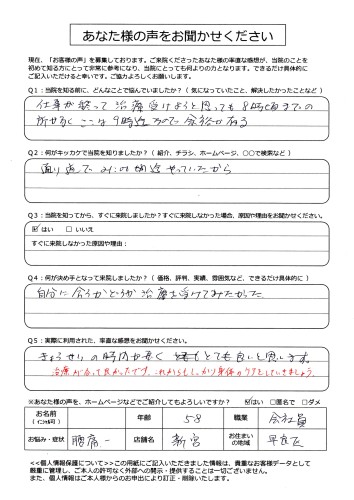 あなた様の声をお聞かせください
現在、「お客様の声」を募集しております。ご来院くださったあなた様の率直な感想が、当院のことを
初めて知る方にとって非常に参考になり、当院にとっても何よりの力となります。できるだけ具体的に
ご記入いただけると幸いです。ご協力よろしくお願いします。
Q1：当院を知る前に、どんなことで悩んでいましたか？（ 気になっていたこと、解決したかったことなど ）
仕事が終って治療受けようと思っても8時頃までの
所が多く ここは9時迄なので余裕が有る
Q2：何がキッカケで当院を知りましたか？（ 紹介、チラシ、ホームページ、○○で検索など ）
通り道で 遅迄やっていたから
Q3：当院を知ってから、すぐに来院しましたか？すぐに来院しなかった場合、原因や理由をお聞かせください。
☑ はい　□ いいえ
すぐに来院しなかった原因や理由：
Q4：何が決め手となって来院しましたか？（ 価格、評判、実績、雰囲気など、できるだけ具体的に ）
自分に合うかどうか治療を受けてみたかった
Q5：実際に利用された、率直な感想をお聞かせください。
きょうせいの時間が長く とても良いと思います。
治療が合って良かったです。これからもしっかり身体のケアをしていきましょう。
※あなた様の声を、ホームページなどでご紹介してもよろしいですか？ ☑はい □匿名で □ダメ
お名前
（イニシャル可）
年齢 58 職業 会社員
お悩み・症状 腰痛 店舗名 新宮 お住まい
の地域
<<個人情報保護について>>この用紙にご記入いただきました情報は、貴重なお客様データとして
厳重に管理し、ご本人の許可なく外部への開示・提供することは一切ございません。
また、個人情報はご本人様からのお申出により訂正・削除いたします。